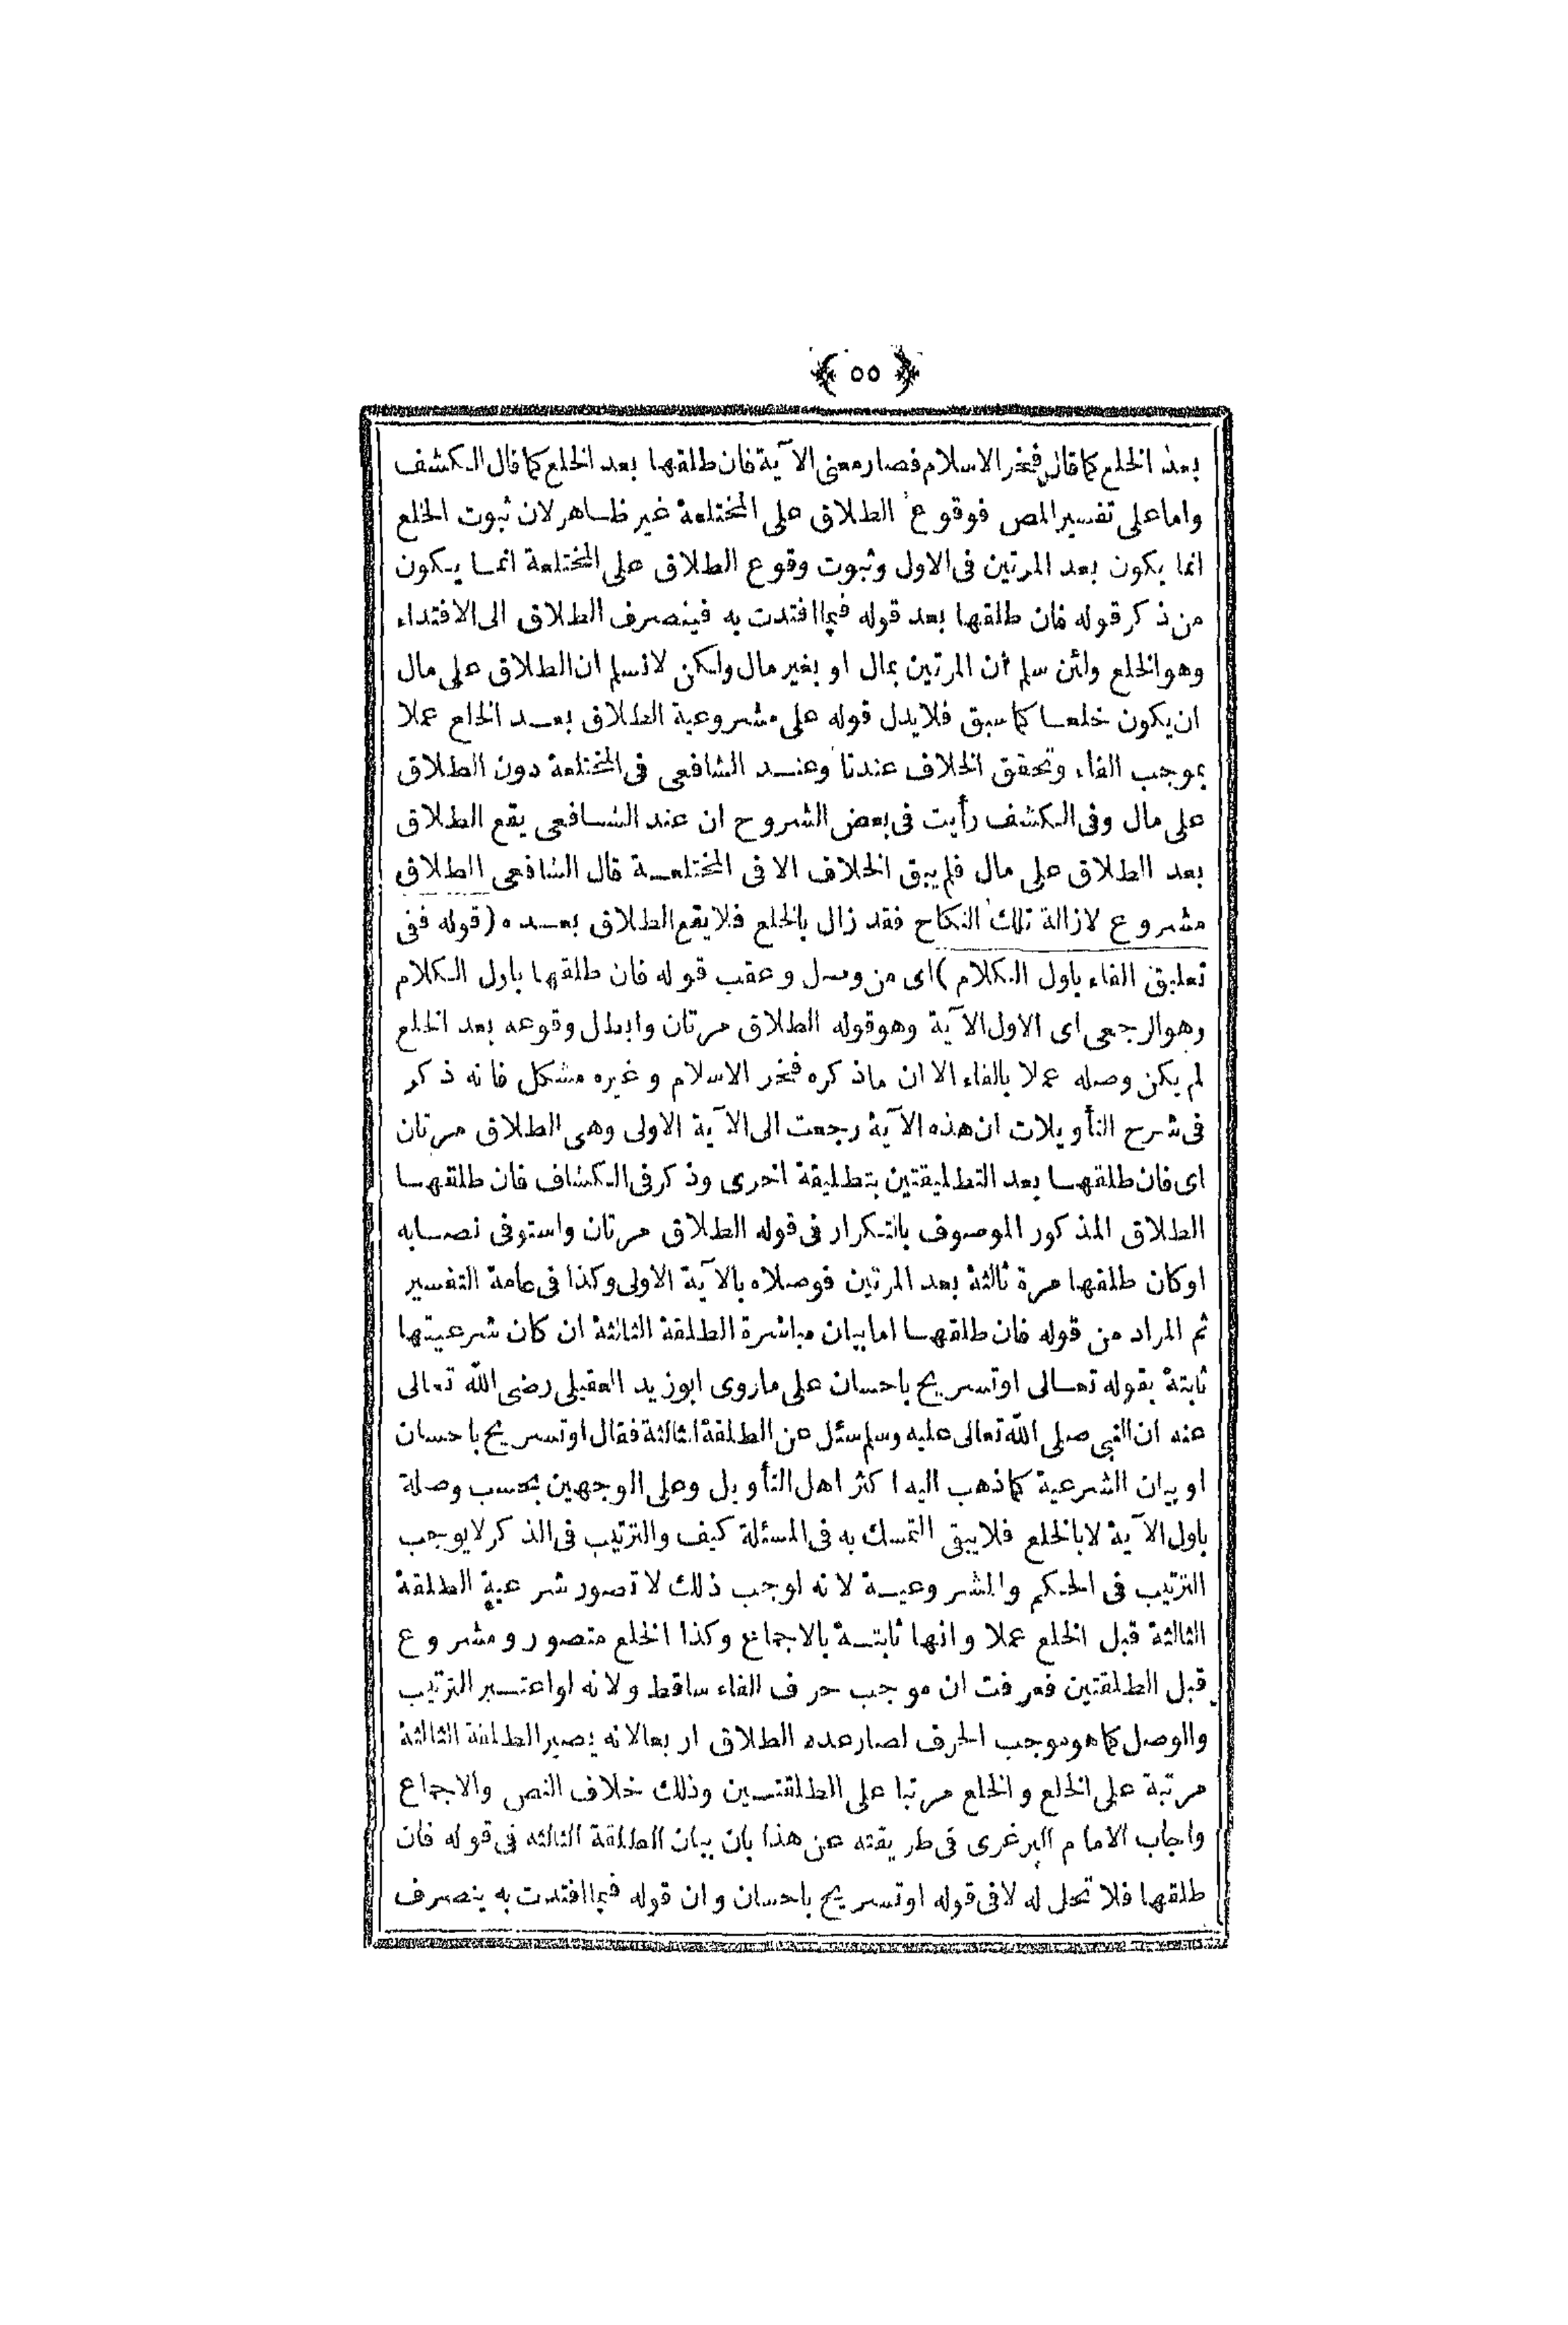 ﴿ ٥٥ ﴾
بعد الخلع كما قال فخر الاسلام فصار معنى الآية فان طلقها بعد الخلع كما قال الكشف
واما على تفسير المص فوقوع الطلاق على المختلعة غير ظاهر لان ثبوت الخلع
انما يكون بعد المرتين فى الاول وثبوت وقوع الطلاق على المختلعة انما يكون
من ذكر قوله فان طلقها بعد قوله فيما افتدت به فينصرف الطلاق الى الافتداء
وهو الخلع ولئن سلم أن المرتين بمال او بغير مال ولكن لانسلم ان الطلاق على مال
ان يكون خلعا كما سبق فلا يدل قوله على مشروعية الطلاق بعد الخلع عملا
بموجب الفاء وتحقق الخلاف عندنا وعند الشافعى فى المختلعة دون الطلاق
على مال وفى الكشف رأيت فى بعض الشروح ان عند الشافعى يقع الطلاق
بعد الطلاق على مال فلم يبق الخلاف الا فى المختلعة قال الشافعى الطلاق
مشروع لازالة تلك النكاح فقد زال بالخلع فلا يقع الطلاق بعده (قوله ففى
تعليق الفاء باول الكلام) اى من وصل وعقب قوله فان طلقها باول الكلام
وهو الرجعى اى الاول الآية وهو قوله الطلاق مرتان وابطل وقوعه بعد الخلع
لم يكن وصله عملا بالفاء الا ان ماذكره فخر الاسلام وغيره مشكل فانه ذكر
فى شرح التأويلات ان هذه الآية رجعت الى الآية الاولى وهى الطلاق مرتان
اى فان طلقها بعد التطليقتين بتطليقة اخرى وذكر فى الكشاف فان طلقها
الطلاق المذكور الموصوف بالتكرار فى قوله الطلاق مرتان واستوفى نصابه
اوكان طلقها مرة ثالثة بعد المرتين فوصلاه بالآية الاولى وكذا فى عامة التفسير
ثم المراد من قوله فان طلقها اما بيان مباشرة الطلقة الثالثة ان كان شرعيتها
ثابتة بقوله تعالى او تسريح باحسان على ماروى ابوزيد العقيلى رضى الله تعالى
عنه ان النبى صلى الله تعالى عليه وسلم سئل عن الطلقة الثالثة فقال او تسريح باحسان
او بيان الشرعية كما ذهب اليه اكثر اهل التأويل وعلى الوجهين بحسب وصلة
باول الآية لا بالخلع فلا يبقى التمسك به فى المسئلة كيف والترتيب فى الذكر لا يوجب
الترتيب فى الحكم والمشروعية لانه لوجب ذلك لا تصور شرعية الطلقة
الثالثة قبل الخلع عملا وانها ثابتة بالاجماع وكذا الخلع متصور ومشروع
قبل الطلقتين فعرفت ان موجب حرف الفاء ساقط ولانه لو اعتبر الترتيب
والوصل كما هو موجب الحرف لصار عدد الطلاق اربعا لانه يصير الطلقة الثالثة
مرتبة على الخلع والخلع مرتبا على الطلقتين وذلك خلاف النص والاجماع
واجاب الامام البرغرى فى طريقته عن هذا بان بيان الطلقة الثالثه فى قوله فان
طلقها فلا تحل له لا فى قوله او تسريح باحسان وان قوله فيما افتدت به ينصرف